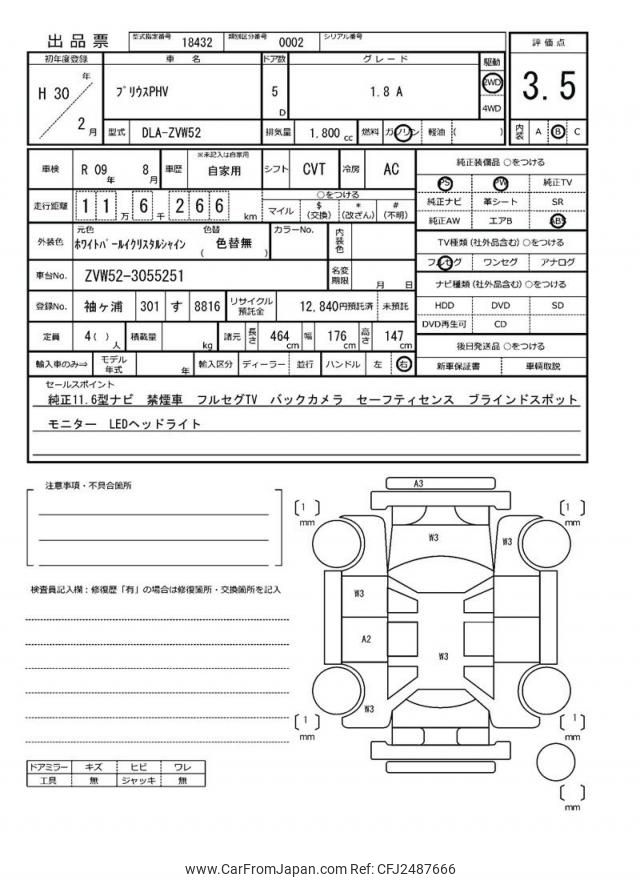 出品票
型式指定番号 18432 類別区分番号 0002 シリアル番号
初年度登録 車 名 ドア数 グレード 駆動 評価点
H 30 年 2 月
プリウスPHV 5 D 1.8 A 2WD 4WD 3.5
型式 DLA-ZVW52 排気量 1,800 cc 燃料 ガソリン 軽油 ( ) 内装 A B C
車検 R 09 年 8 月 車歴 ※未記入は自家用 自家用 シフト CVT 冷房 AC
純正装備品 ○をつける
PS PW 純正TV
純正ナビ 革シート SR
純正AW エアB ABS
走行距離 1 1 万 6 千 2 6 6 km
○をつける
マイル $(交換) *(改ざん) #(不明)
外装色 元色 ホワイトパールクリスタルシャイン 色替 ( 色替無 ) カラーNo. 内装色
TV種類 (社外品含む) ○をつける
フルセグ ワンセグ アナログ
車台No. ZVW52-3055251 名変期限 月 日
ナビ種類 (社外品含む) ○をつける
HDD DVD SD
DVD再生可 CD
登録No. 袖ヶ浦 301 す 8816 リサイクル預託金 12,840円預託済 未預託
定員 4( ) 人 積載量 kg 諸元 長さ 464 cm 幅 176 cm 高さ 147 cm
後日発送品 ○をつける
新車保証書 車輌取説
輸入車のみ⇒ モデル年式 年 輸入区分 ディーラー 並行 ハンドル 左 右
セールスポイント
純正11.6型ナビ 禁煙車 フルセグTV バックカメラ セーフティセンス ブラインドスポット
モニター LEDヘッドライト
注意事項・不具合箇所
検査員記入欄:修復歴「有」の場合は修復箇所・交換箇所を記入
A3
[ 1 ] mm
[ 1 ] mm
W3
W3
W3
A2
W3
W3
[ 1 ] mm
[ 1 ] mm
[ ] mm
ドアミラー キズ ヒビ ワレ
工具 無 ジャッキ 無
www.CarFromJapan.com Ref: CFJ2487666